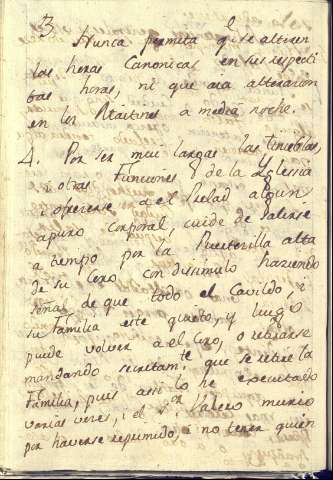 3. Nunca permita q.e se alteren
las horas Canonicas en sus respecti
bas horas, ni que aia alteracion
en los Maitines a media noche.
4. Por ser mui largas las tinieblas,
i otras Funciones de la Yglessia
i ofrecerse a el Prelad algun
apuro corporal, cuide de salirse
a tiempo por la Puertecilla alta
de su Coro con disimulo haziendo
señas de que todo el Cavildo, i
su Familia este quieto, y luego
puede volver a el coro, o retirarse
mandando secretam.te que se retire la
Familia, pues assi lo he executado
varias veces, i el S.or Valero murio
por haverse reprimido, i no tener quien